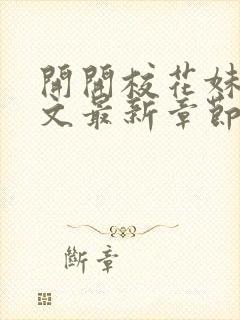 開開校花妹
文最新章節
斷章